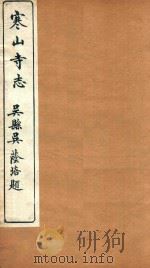 寒山寺志
吳縣吳蔭培題